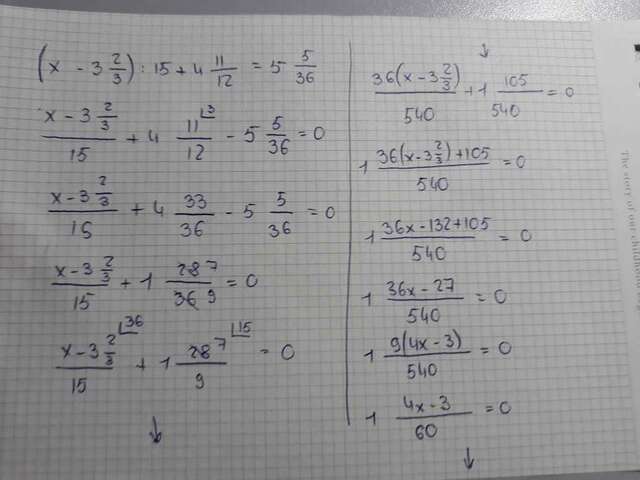 (x - 3 2/3) : 15 + 4 11/12 = 5 5/36
(x - 3 2/3)/15 + 4 11/12 ⌊3 - 5 5/36 = 0
(x - 3 2/3)/15 + 4 33/36 - 5 5/36 = 0
(x - 3 2/3)/15 + 1 28 7/36 9 = 0
(x - 3 2/3)/15 ⌊36 + 1 28 7/9 ⌊15 = 0
↓
↓
36(x - 3 2/3)/540 + 1 105/540 = 0
1 (36(x - 3 2/3) + 105)/540 = 0
1 (36x - 132 + 105)/540 = 0
1 (36x - 27)/540 = 0
1 9(4x - 3)/540 = 0
1 (4x - 3)/60 = 0
↓
The story of our childhood